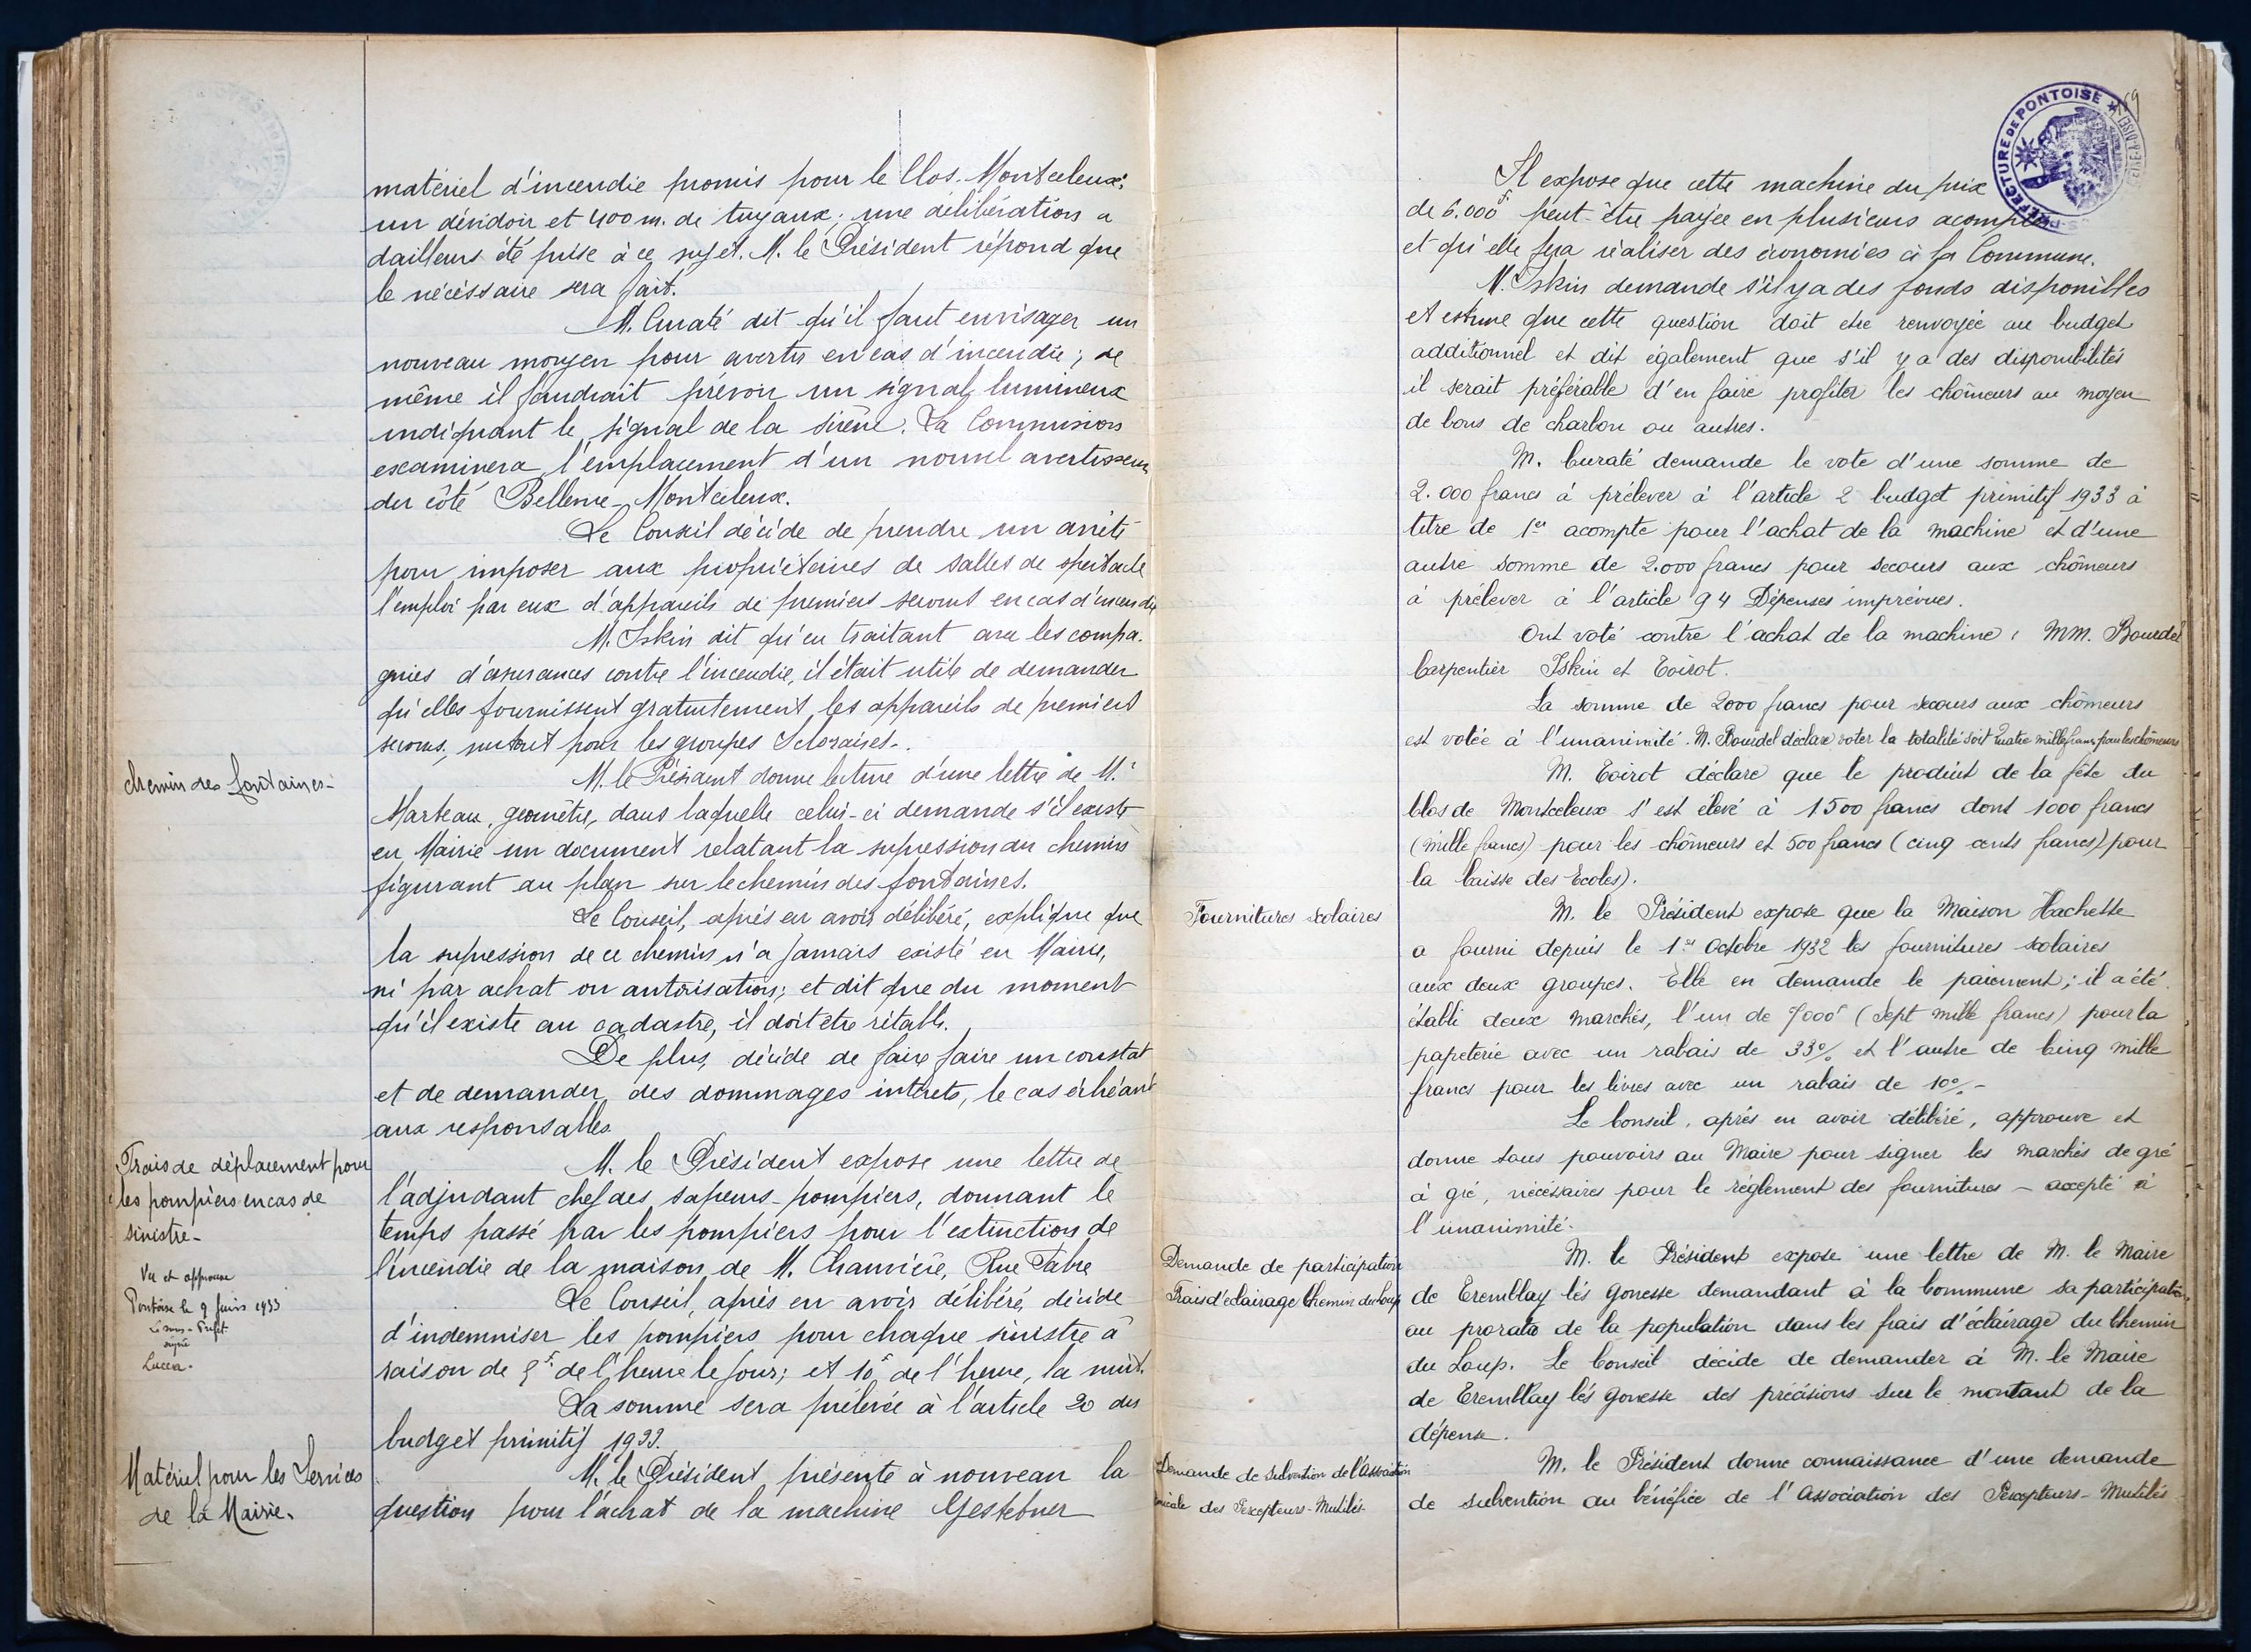 matériel d'incendie promis pour le Clos. Montceleux:
un dévidoir et 400 m. de tuyaux; une délibération a
dailleurs été prise à ce sujet. M. le Président répond que
le nécéssaire sera fait.
M. Curaté dit qu'il faut envisager un
nouveau moyen pour avertir en cas d'incendie; de
même il faudrait prévoir un signal lumineux
indiquant le signal de la sirène. La Commission
examinera l'emplacement d'un nouvel avertisseur
du côté Bellevue-Montceleux.
Le Conseil décide de prendre un arrêté
pour imposer aux propriétaires de salles de spectacle
l'emploi par eux d'appareils de premiers secours en cas d'incendie
M. Iskin dit qu'en traitant avec les compa-
gnies d'assurances contre l'incendie, il était utile de demander
qu'elles fournissent gratuitement les appareils de premiers
secours, surtout pour les groupes Scloraires-.
chemin des fontaines-
M. le Président donne lecture d'une lettre de M.
Marteau, géomètre, dans laquelle celui-ci demande s'il existe
en Mairie un document relatant la supression du chemin
figurant au plan sur le chemin des fontaines.
Le Conseil, après en avoir délibéré, explique que
la supression de ce chemin n'a jamais existé en Mairie,
ni par achat ou autorisation; et dit que du moment
qu'il existe au cadastre, il doit etre rétabli.
De plus, décide de faire faire un constat
et de demander des dommages intérets, le cas échéant
aux responsables.
Frais de déplacement pour
les pompiers en cas de
sinistre-
Vu et approuvé
Pontoise le 9 Juin 1933
Le sous-Préfet
signé
Lucca.
M. le Président expose une lettre de
l'adjudant chef des sapeurs-pompiers, donnant le
temps passé par les pompiers pour l'extinction de
l'incendie de la maison de M. Rue Fabre
Le Conseil, après en avoir délibéré, décide
d'indemniser les pompiers pour chaque sinistre à
raison de de l'heure le jour; et 10f de l'heure, la nuit.
La somme sera prélévée à l'article 20 du
budget primitif 1933.
Matériel pour les Services
de la Mairie.
M. le Président présente à nouveau la
question pour l'achat de la machine Gestetner
SOUS-PRÉFECTURE DE PONTOISE
Il expose que cette machine du prix
de 6.000f peut-être payée en plusieurs acomptes
et qu'elle fera réaliser des économies à la Commune.
M. Iskin demande s'il y a des fonds disponibles
et estime que cette question doit etre renvoyée au budget
additionnel et dit également que s'il y a des disponibilités
il serait préférable d'en faire profiter les chômeurs au moyen
de bons de charbon ou autres.
M. Curaté demande le vote d'une somme de
2.000 francs à prélever à l'article 2 budget primitif 1933 à
titre de 1er acompte pour l'achat de la machine et d'une
autre somme de 2.000 francs pour secours aux chômeurs
à prélever à l'article 94 Dépenses imprévues.
Ont voté contre l'achat de la machine: MM. Bourdel
Carpentier Iskin et Toirot.
La somme de 2000 francs pour secours aux chômeurs
est votée à l'unanimité. M. Bourdel déclare voter la totalité soit quatre mille francs pour les chômeurs
M. Toirot déclare que le produit de la fête du
Clos de Montceleux s'est élevé à 1500 francs dont 1000 francs
(mille francs) pour les chômeurs et 500 francs (cinq cents francs) pour
la Caisse des Ecoles).
Fournitures scolaires
M. le Président expose que la Maison Hachette
a fourni depuis le 1er Octobre 1932 les fournitures scolaires
aux deux groupes. Elle en demande le paiement; il a été
établi deux marchés, l'un de 7000f (Sept mille francs) pour la
papeterie avec un rabais de 33% et l'autre de Cinq mille
francs pour les livres avec un rabais de 10%-
Le Conseil, après en avoir délibéré, approuve et
donne tous pouvoirs au Maire pour signer les marchés de gré
à gré, nécéssaires pour le règlement des fournitures - accepté à
l'unanimité.
Demande de participation
Frais d'eclairage Chemin du Loup
M. le Président expose une lettre de M. le Maire
de Tremblay lès Gonesse demandant à la Commune sa participation
au prorata de la population dans les frais d'éclairage du Chemin
du Loup. Le Conseil décide de demander à M. le Maire
de Tremblay lès Gonesse des précisions sur le montant de la
dépense.
Demande de subvention de l'Association
amicale des Percepteurs-Mutilés-
M. le Président donne connaissance d'une demande
de subvention au bénéfice de l'Association des Percepteurs-Mutilés